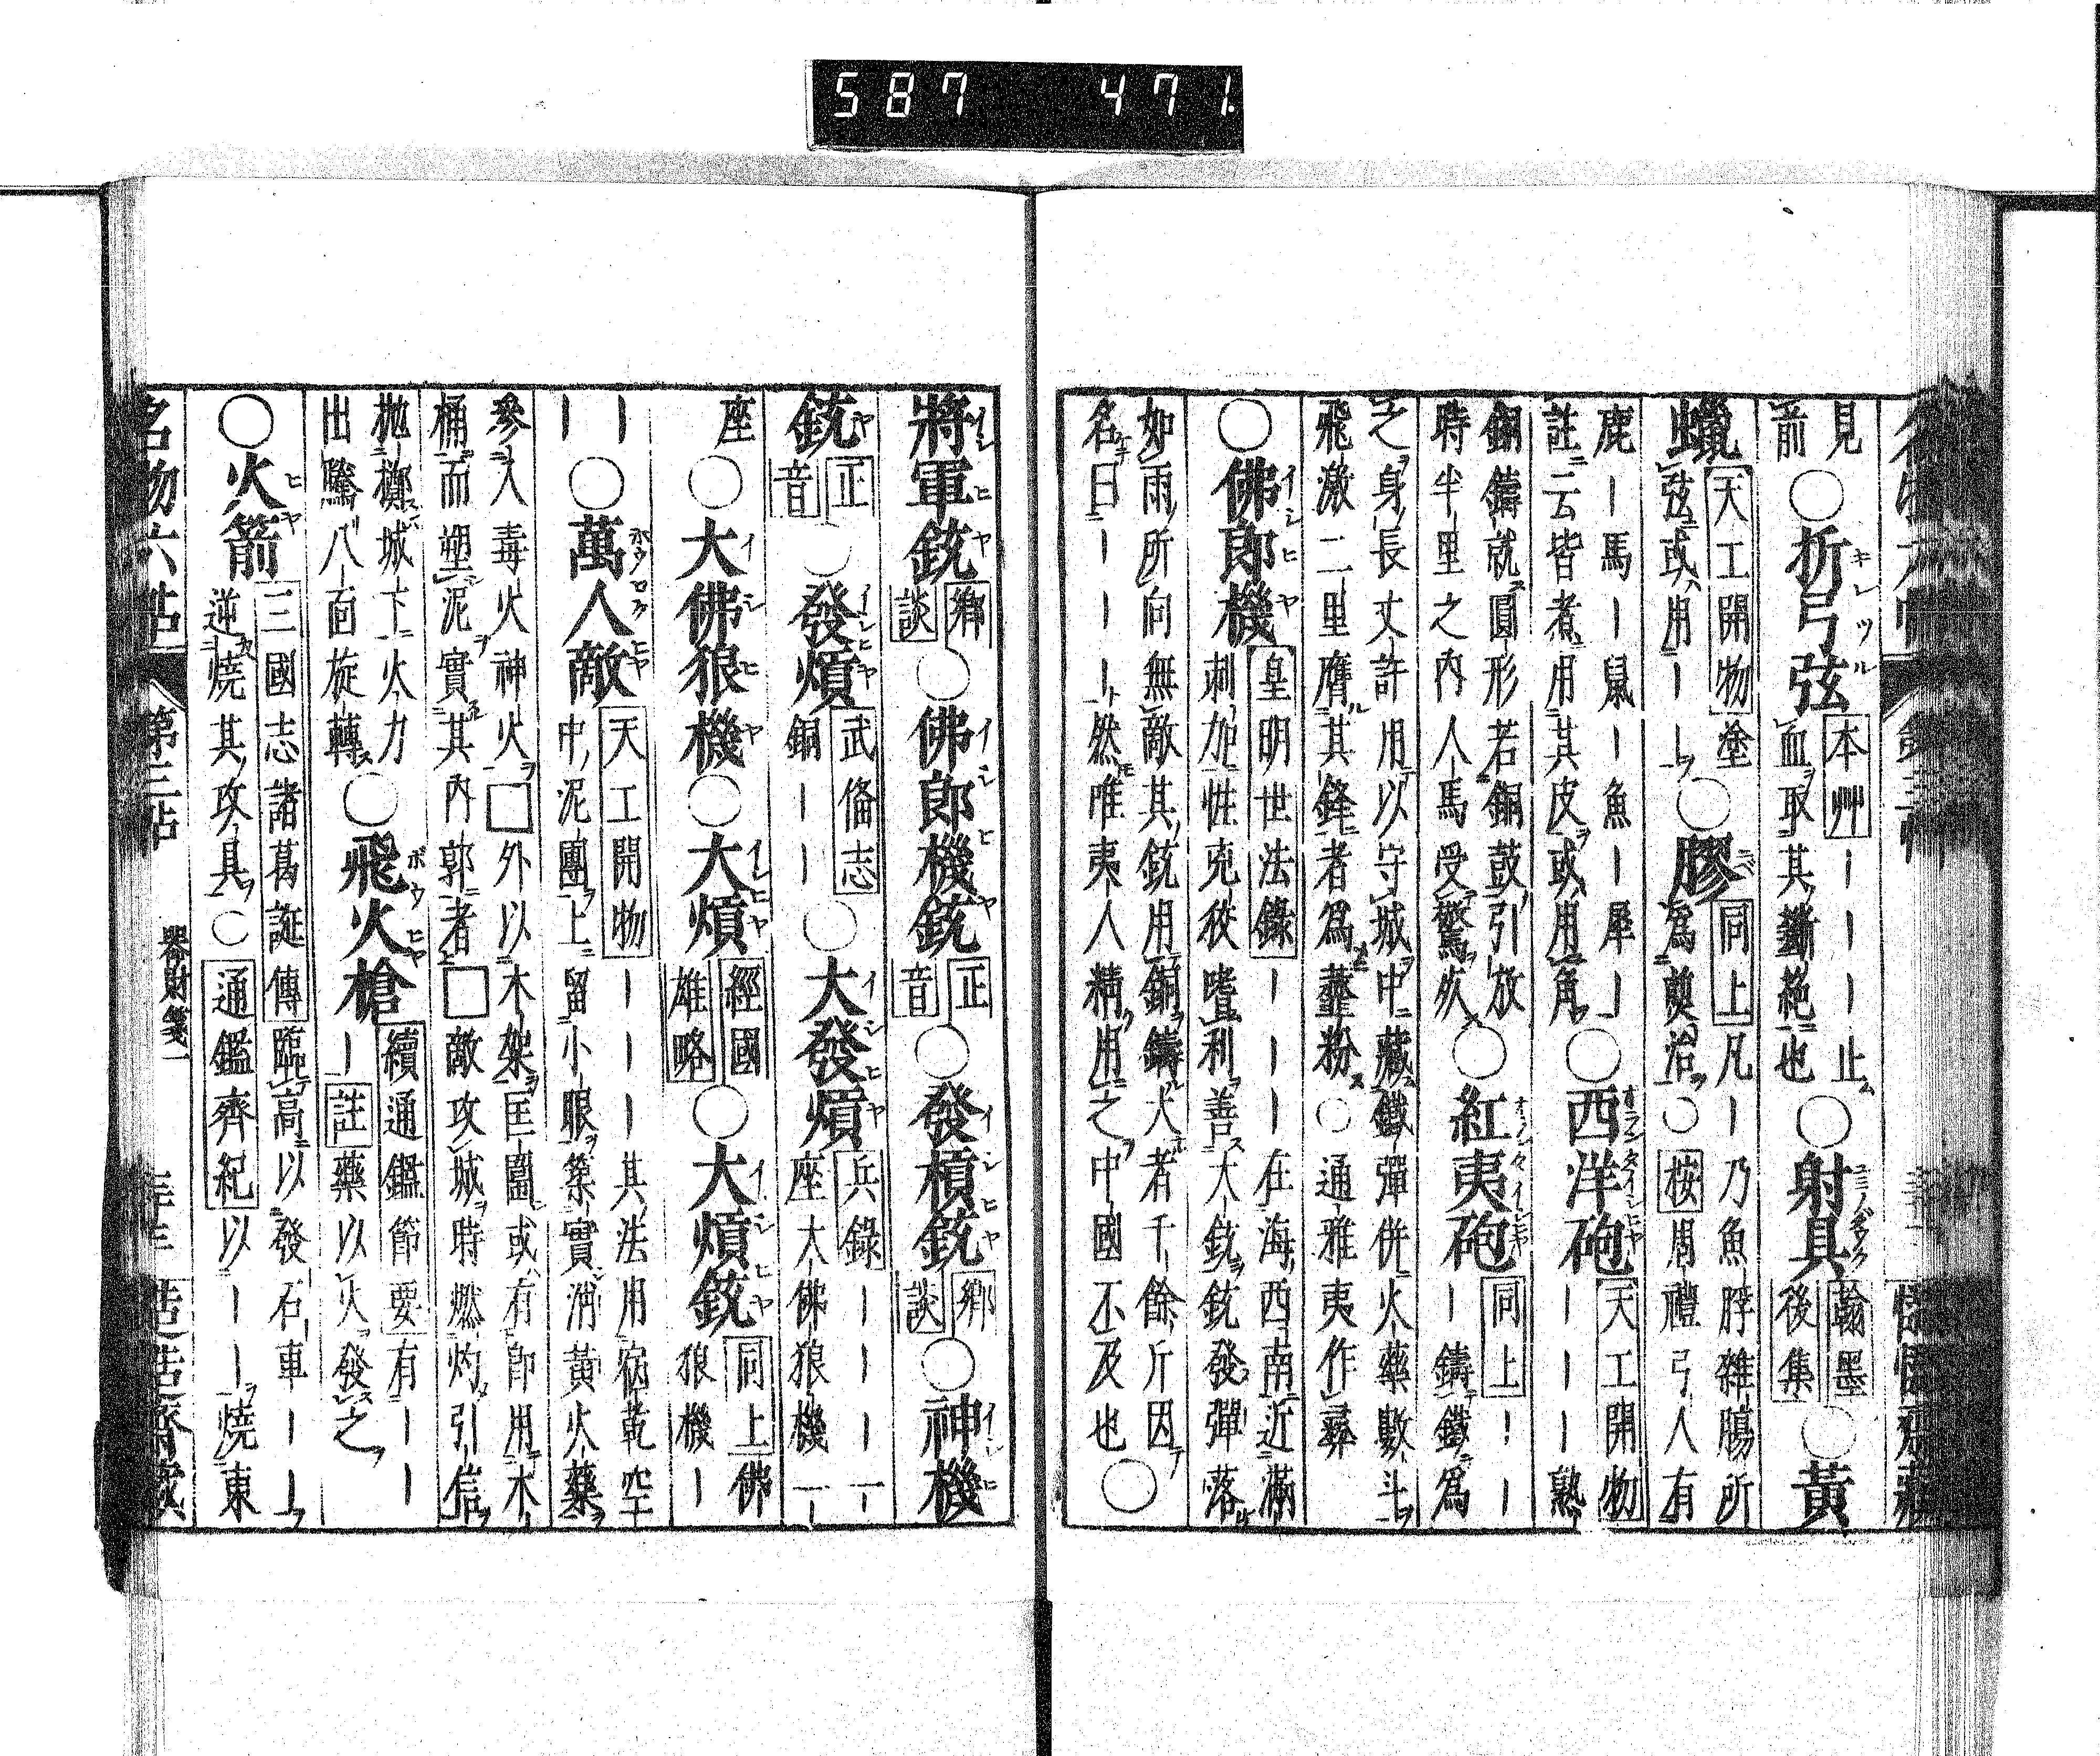 587 471
見
箭○折弓弦本艸ーーーー止
血取其斷絶也○射具翰墨
後集○黃
蠟天工開物塗
弦或用ーー○膠同上凡ー乃魚脬雜膓所
爲煎治○按周禮弓人有
鹿ー馬ー鼠ー魚ー犀ー
註云皆煮用其皮或用角○西洋砲天工開物
ーーー熟
銅鑄就圓形若銅鼓引放
時半里之內人馬受驚死○紅夷砲同上ーー
ー鑄鐵爲
之身長丈許用以守城中藏鐵彈併火藥數斗
飛激二里膺其鋒者爲虀粉○通雅夷作彛
○佛郎機皇明世法錄ーーー在海西南近滿
刺加性兇狡嗜利善大銃銃發彈落
如雨所向無敵其銃用銅鑄大者千餘斤因
名曰ーーー然唯夷人精用之中國不及也○
將軍銃鄉談○佛郎機銃正音○發槓銃鄉談○神機
銃正音○發熕武備志
銅ーー○大發熕兵錄ーーー
座大佛狼機ー
座○大佛狼機○大熕經國雄略○大熕銃同上佛
狼機ー
ー
ー○萬人敵天工開物ーーー其法用宿乾空
中泥團上留小眼築實消黃火藥
參入毒火神火□外以木架匡圍或有卽用木
桶而塑泥實其內郭者□敵攻城時燃灼引信
抛擲城下火力
出騰八面旋轉○飛火槍續通鑑節要有ーー
ー註藥以火發之
○火箭三國志諸葛誕傳臨高以發石車ーー
逆燒其攻具○通鑑齊紀以ーー燒東
名物六帖 第三帖 器財箋一